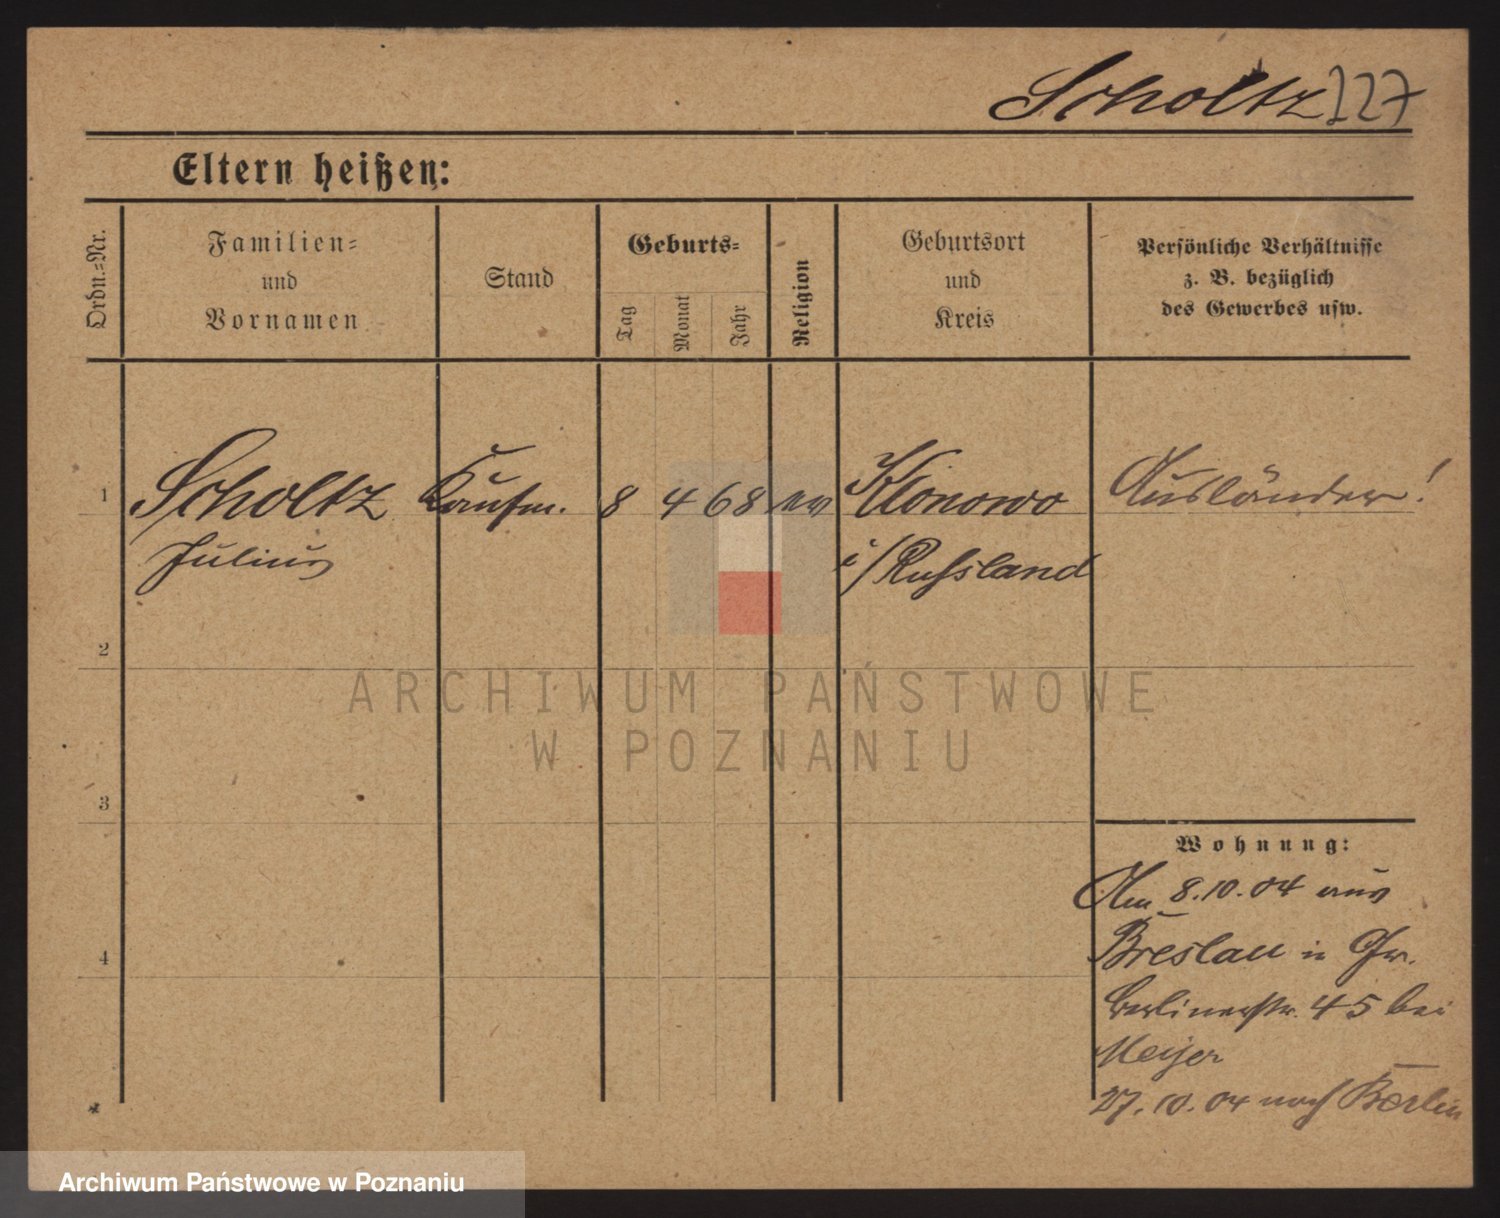 Scholtz 227
Eltern heißen:
Ordn.-Nr.
Familien-
und
Vornamen
Stand
Geburts-
Tag
Monat
Jahr
Religion
Geburtsort
und
Kreis
Persönliche Verhältnisse
z. B. bezüglich
des Gewerbes usw.
1 Scholtz Kaufm. 8 4 68 ev Klonowo Ausländer!
Julius i/Russland
2
ARCHIWUM PAŃSTWOWE
W POZNANIU
3
Wohnung:
Am 8.10.04 aus
Breslau in Gr.
4
Berlinerstr. 45 bei
Meyer
27.10.04 nach Berlin
Archiwum Państwowe w Poznaniu